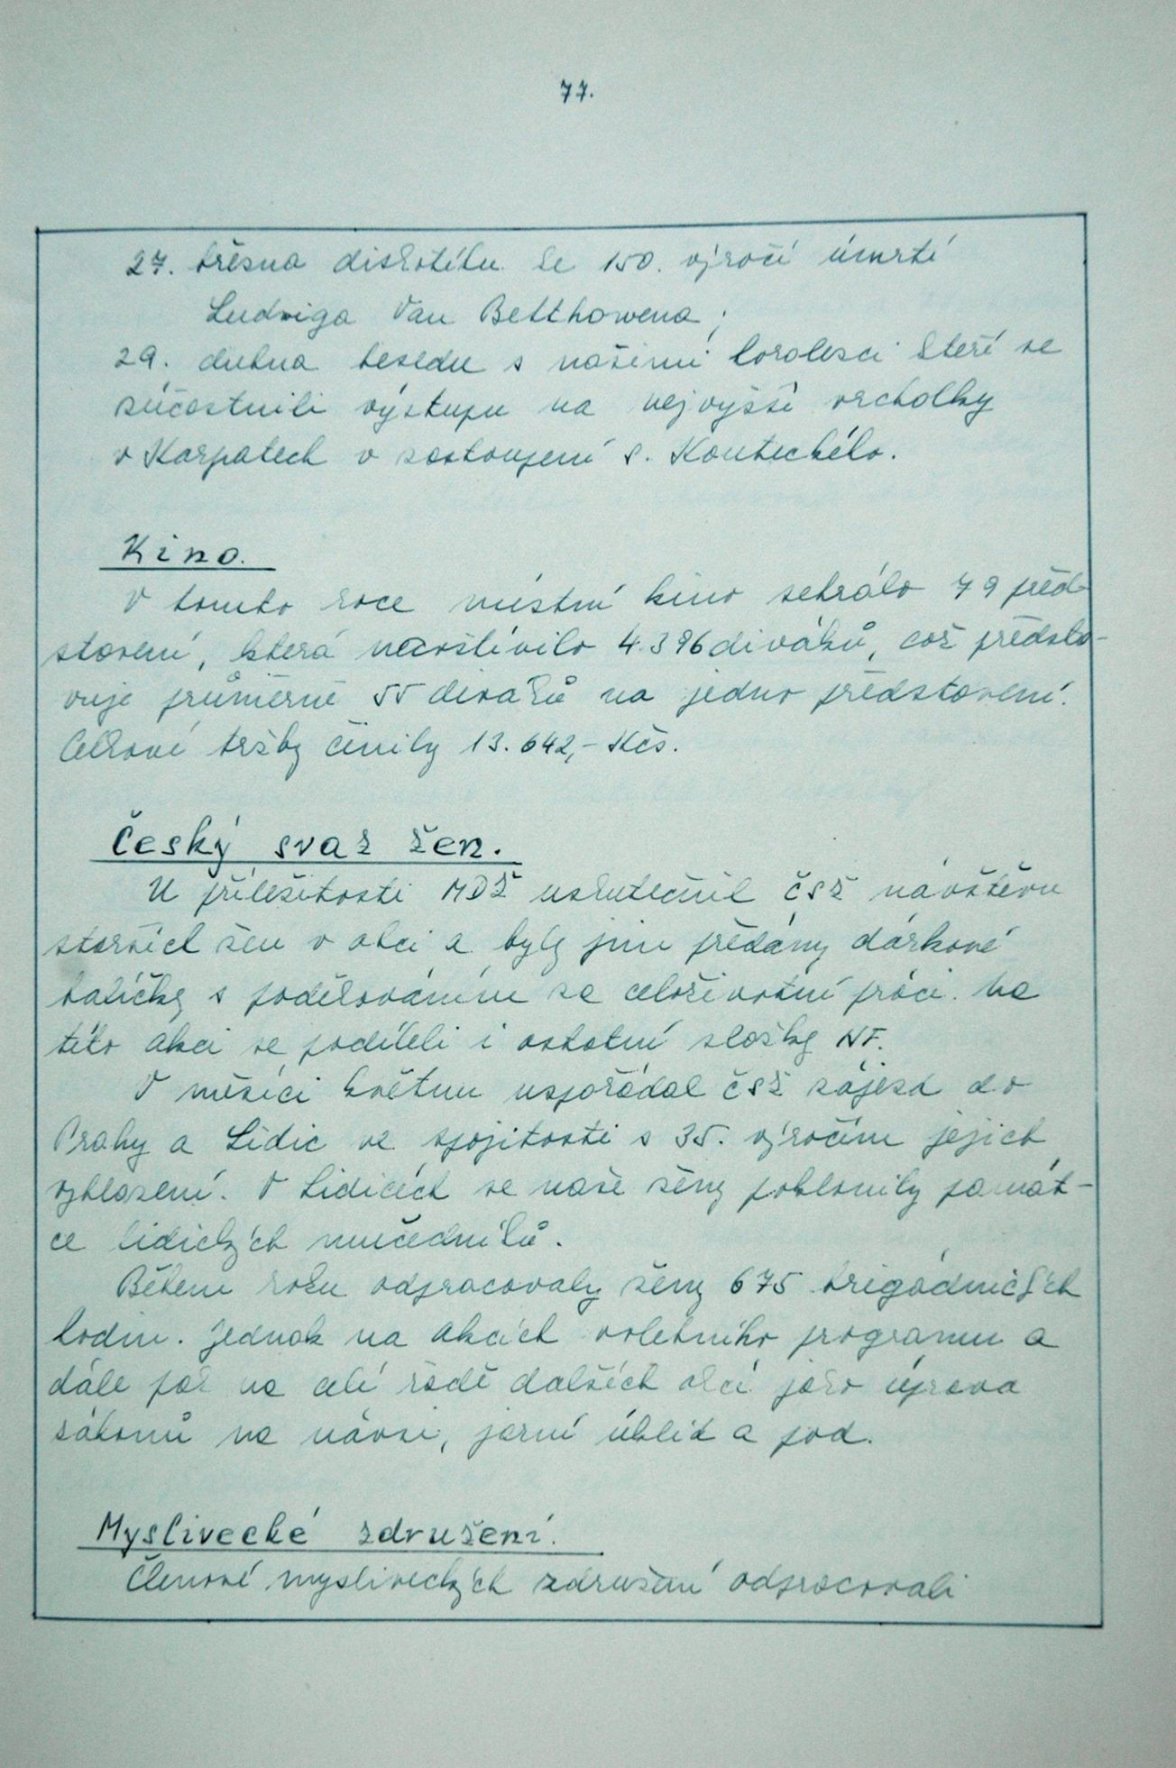 77.
27. března diskotéku ke 150. výročí úmrtí
Ludviga Van Betthowena;
29. dubna besedu s našimi horolezci kteří se
súčastnili výstupu na nejvyšší vrcholky
v Karpatech v zastoupení s. Kouteckého.
Kino.
V tomto roce místní kino sehrálo 79 před-
stavení, která navštívilo 4.396 diváků, což předsta-
vuje průměrně 55 diváků na jedno představení.
Celkové tržby činily 13.642,- Kčs.
Český svaz žen.
U příležitosti MDŽ uskutečnil ČSŽ návštěvu
starších žen v obci a byly jim předány dárkové
balíčky s poděkováním za celoživotní práci. Na
této akci se podíleli i ostatní složky NF.
V měsíci květnu uspořádal ČSŽ zájezd do
Prahy a Lidic ve spojitosti s 35. výročím jejich
vyhlazení. V Lidicích se naše ženy poklonily památ-
ce lidických mučedníků.
Během roku odpracovaly ženy 675 brigádnických
hodin. Jednak na akcích volebního programu a
dále pak na celé řadě dalších akcí jako úprava
záhonů na návsi, jarní úklid a pod.
Myslivecké združení.
Členové mysliveckých združení odpracovali